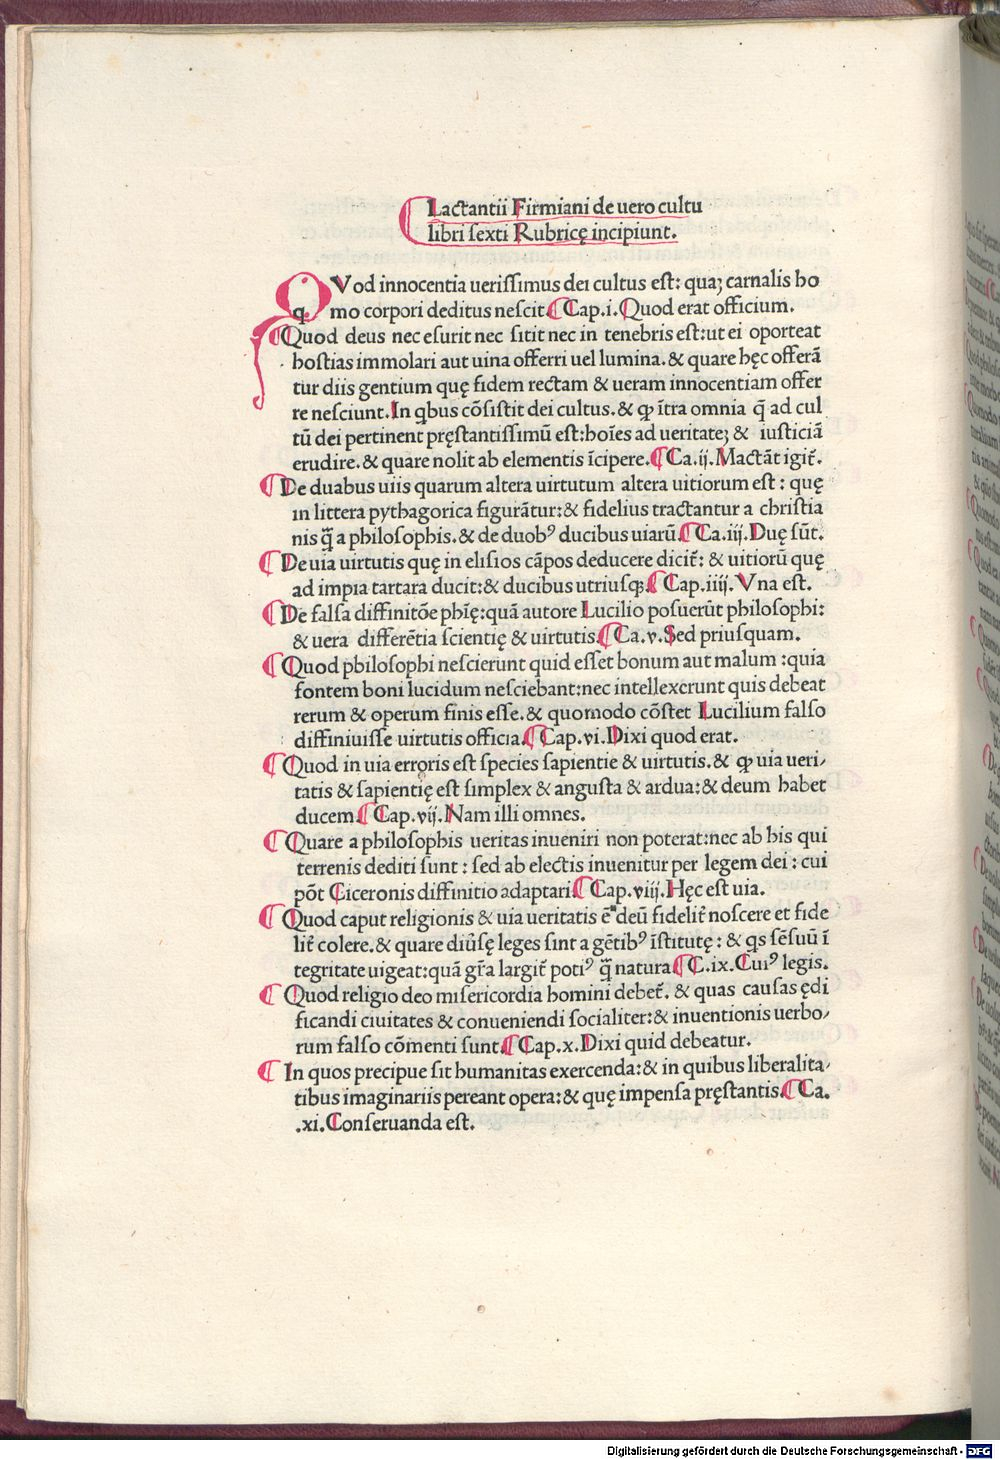 Lactantii Firmiani de uero cultu
libri sexti Rubricę incipiunt.
QVod innocentia uerissimus dei cultus est: quaꝫ carnalis ho
mo corpori deditus nescit. ¶Cap.i. Quod erat officium.
¶Quod deus nec esurit nec sitit nec in tenebris est:ut ei oporteat
hostias immolari aut uina offerri uel lumina.& quare hęc offerã
tur diis gentium quę fidem rectam & ueram innocentiam offer
re nesciunt.In qbus cõsistit dei cultus.& ꝙ ĩtra omnia q̃ ad cul
tũ dei pertinent pręstantissimũ est:hoĩes ad ueritateꝫ & iusticiã
erudire.& quare nolit ab elementis ĩcipere.¶Ca.ij.Mactãt igit̃.
¶De duabus uiis quarum altera uirtutum altera uitiorum est : quę
in littera pythagorica figurãtur:& fidelius tractantur a christia
nis q̃ a philosophis.& de duobꝰ ducibus uiarũ.¶Ca.iij.Duę sũt.
¶De uia uirtutis quę in elisios cãpos deducere dicit̃: & uitiorũ quę
ad impia tartara ducit:& ducibus utriusqꝫ.¶Cap.iiij.Vna est.
¶De falsa diffinitõe phĩę:quã autore Lucilio posuerũt philosophi:
& uera differẽtia scientię & uirtutis.¶Ca.v.Sed priusquam.
¶Quod philosophi nescierunt quid esset bonum aut malum :quia
fontem boni lucidum nesciebant:nec intellexerunt quis debeat
rerum & operum finis esse.& quomodo cõstet Lucilium falso
diffiniuisse uirtutis officia.¶Cap.vi.Dixi quod erat.
¶Quod in uia erroris est species sapientie & uirtutis.& ꝙ uia ueri/
tatis & sapientię est simplex & angusta & ardua:& deum habet
ducem.¶Cap.vij.Nam illi omnes.
¶Quare a philosophis ueritas inueniri non poterat:nec ab his qui
terrenis dediti sunt : sed ab electis inuenitur per legem dei : cui
põt Ciceronis diffinitio adaptari.¶Cap.viij.Hęc est uia.
¶Quod caput religionis & uia ueritatis ẽ deũ fidelit̃ noscere et fide
lit̃ colere.& quare diũsę leges sint a gẽtibꝰ ĩstitutę : & qs sẽsuũ ĩ
tegritate uigeat:quã gr̃a largit̃ potiꝰ q̃ natura.¶C.ix.Cuiꝰ legis.
¶Quod religio deo misericordia homini debet̃. & quas causas ędi
ficandi ciuitates & conueniendi socialiter:& inuentionis uerbo/
rum falso cõmenti sunt.¶Cap.x.Dixi quid debeatur.
¶In quos precipue sit humanitas exercenda:& in quibus liberalita/
tibus imaginariis pereant opera:& quę impensa pręstantis.¶Ca.
.xi.Conseruanda est.
Digitalisierung gefördert durch die Deutsche Forschungsgemeinschaft - DFG